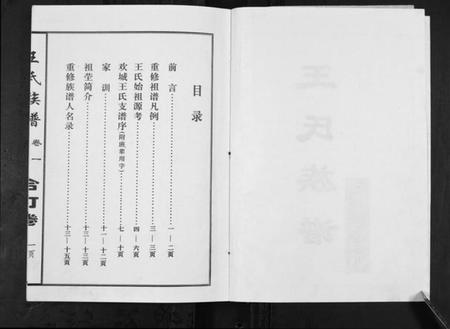 目录
前言……一—二页
重修祖谱凡例……三—三页
王氏始祖源考……四—六页
欢城王氏支谱序(附派辈用字)……七—十页
家训……十一—十二页
祖茔简介……十三—十三页
重修族谱人名录……十三—十五页
王氏族谱 卷一 合订卷 一页
王氏族谱